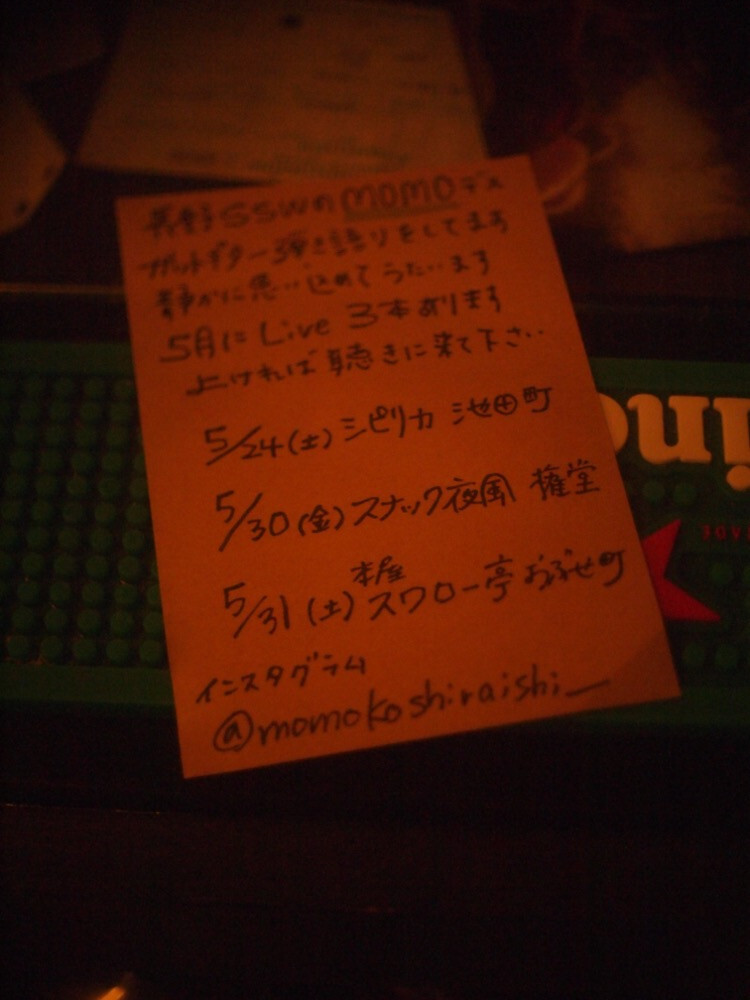 長野SSWのMOMOデス
ガットギター弾き語りをしてます
静かに思い込めてうたいます
5月にLive 3本あります
よければ聴きに来て下さい
5/24(土)シピリカ 池田町
5/30(金)スナック夜風 権堂
本屋
5/31(土)スワロー亭 おぶせ町
インスタグラム
@momokoshiraishi_